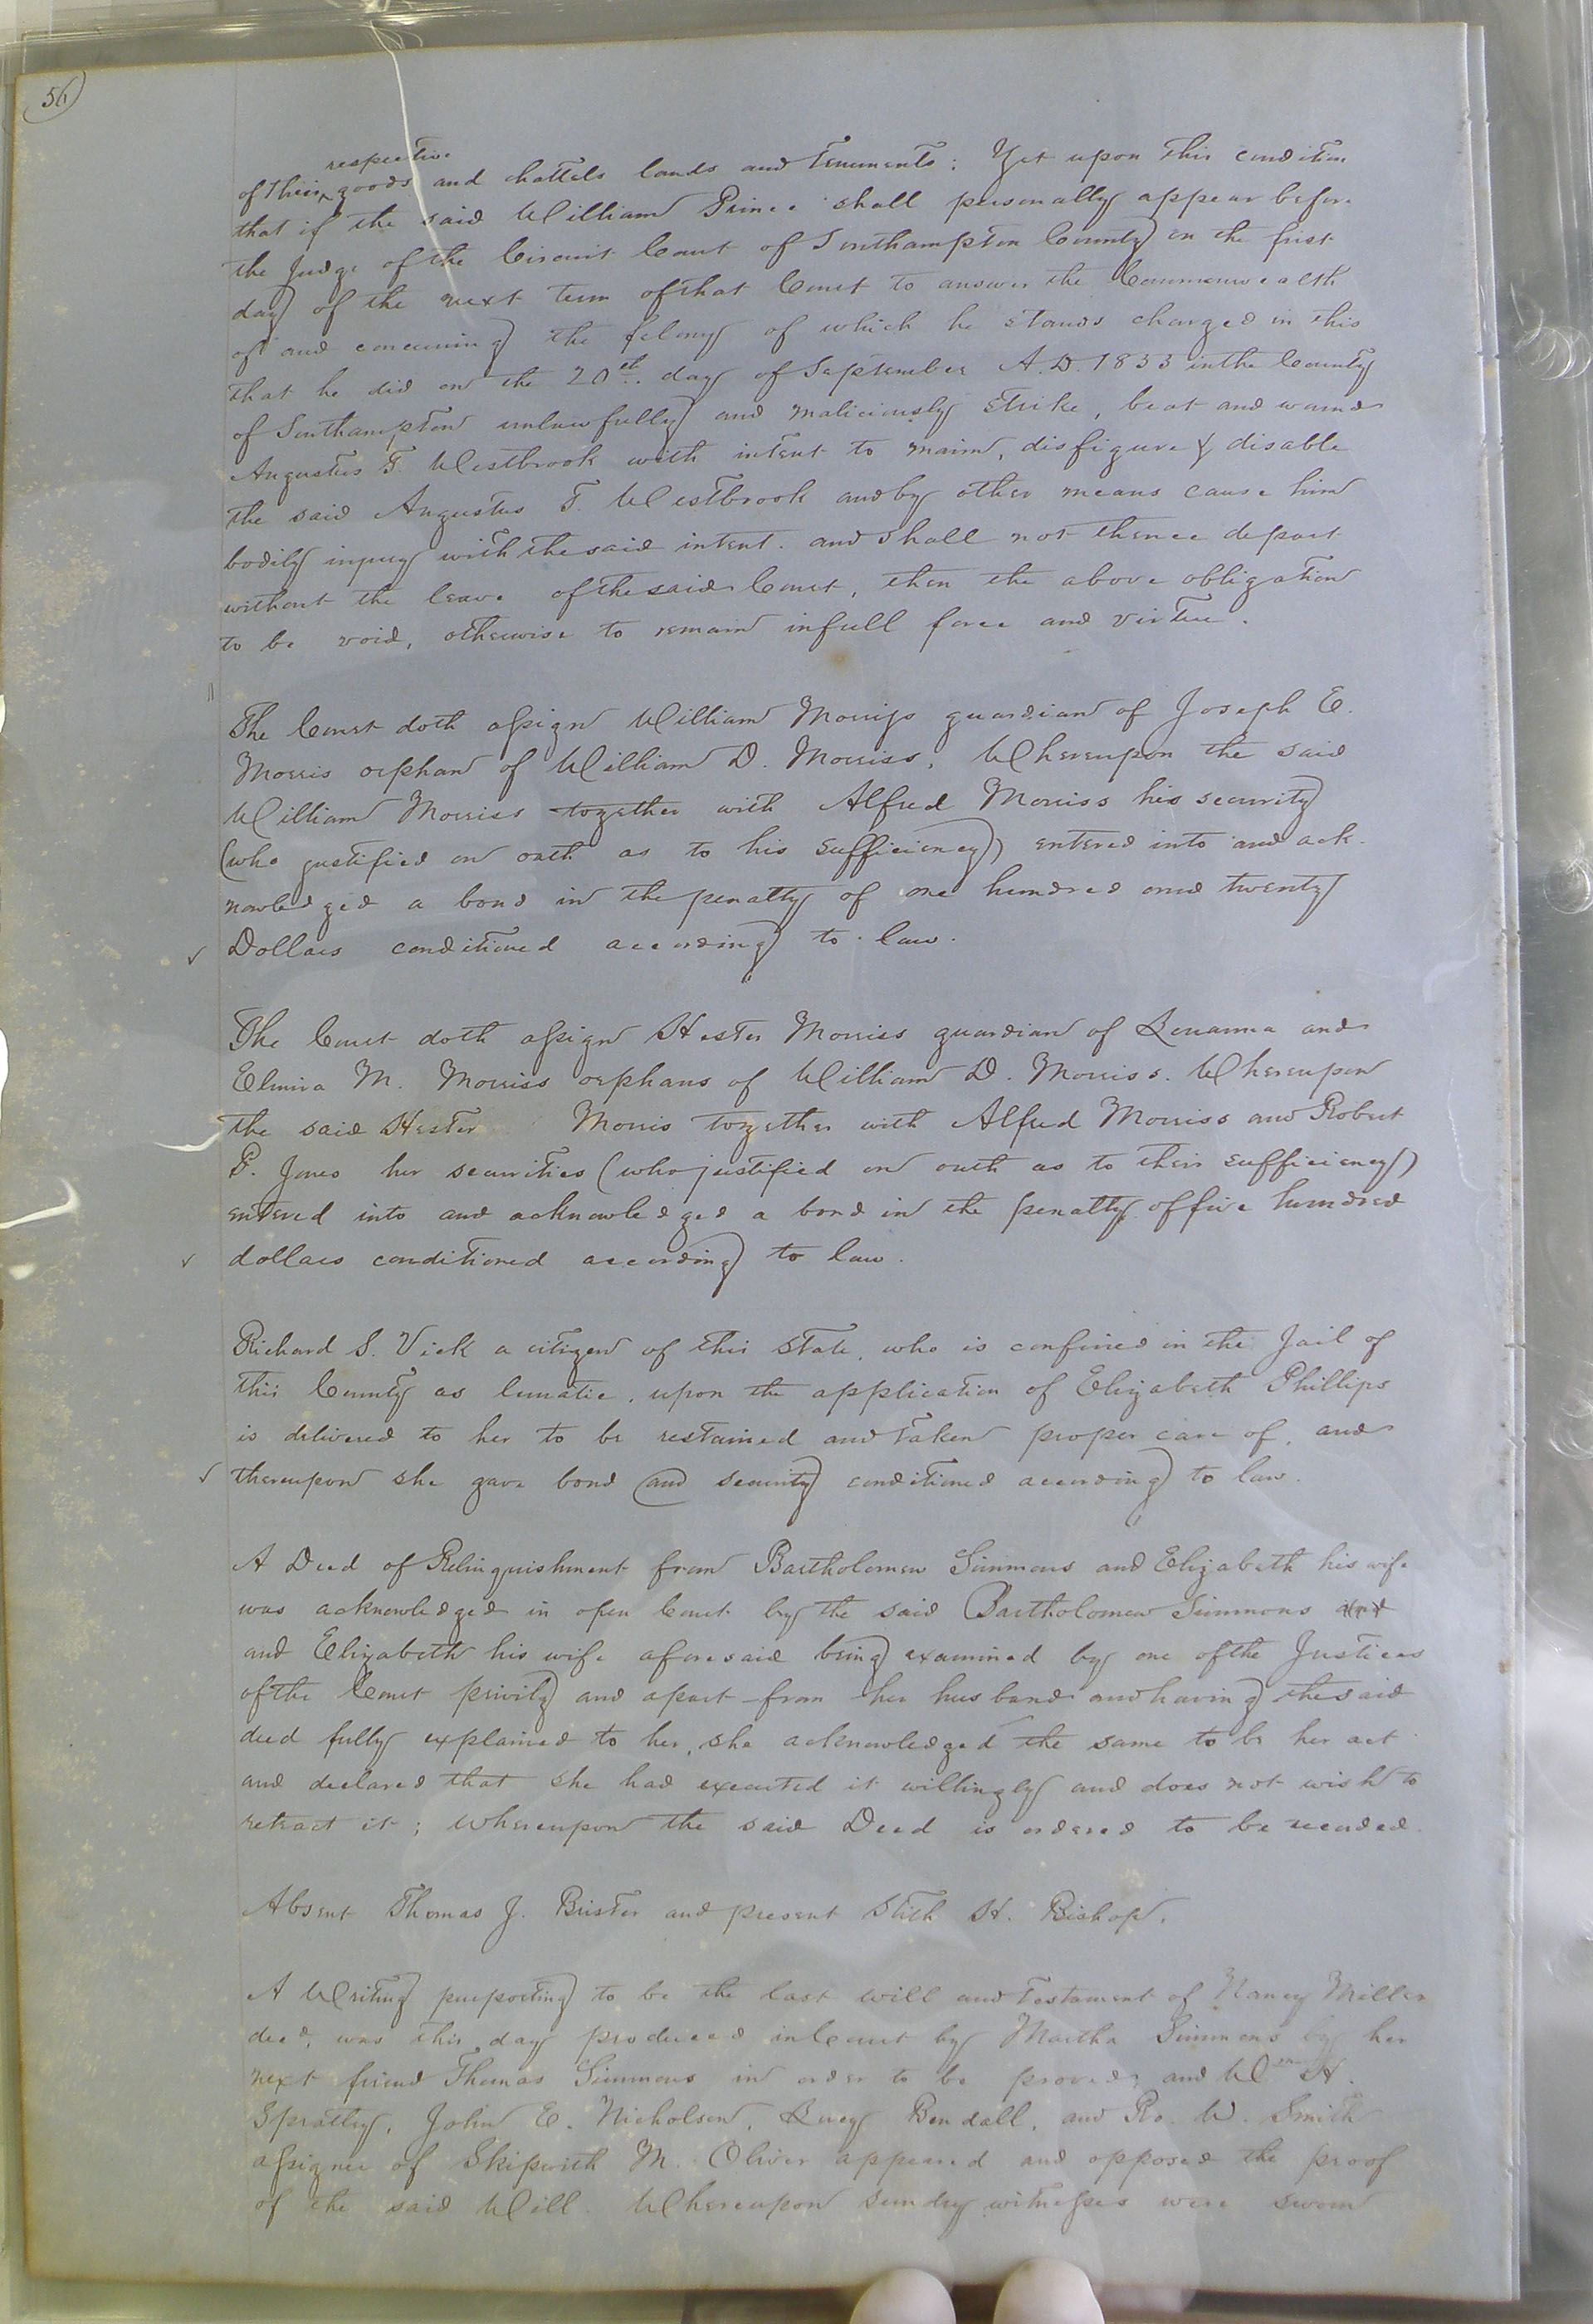 56
respective
of their ^ goods and chattels lands and tenements; Yet upon this condition
that if the said William Prince shall personally appear before
the Judge of the Circuit Court of Southampton County on the first
day of the next term of that Court to answer the Commonwealth
of and concerning the felony of which he stands charged in this
that he did on the 20th day of September A.D. 1853 in the County
of Southampton unlawfully and maliciously strike, beat and wound
Augustus F. Westbrook with intent to maim, disfigure & disable
the said Augustus F. Westbrook and by other means cause him
bodily injury with the said intent. and shall not thence depart
without the leave of the said Court, then the above obligation
to be void, otherwise to remain in full force and virtue.
The Court doth assign William Morriss guardian of Joseph E.
Morris orphan of William D. Morriss. Whereupon the said
William Morriss together with Alfred Morriss his security
(who justified on oath as to his sufficiency) entered into and ack-
nowledged a bond in the penalty of one hundred and twenty
Dollars conditioned according to law.
The Court doth assign Hester Morriss guardian of and
Elmira M. Morriss orphans of William D. Morriss. Whereupon
the said Hester Morris together with Alfred Morriss and Robert
P. Jones her securities (who justified on oath as to their sufficiency)
entered into and acknowledged a bond in the penalty of five hundred
dollars conditioned according to law.
Richard S. Vick a citizen of this state, who is confined in the Jail of
this County as lunatic, upon the application of Elizabeth Phillips
is delivered to her to be restained and taken proper care of, and
thereupon she gave bond (and security) conditioned according to law.
A Deed of Relinquishment from Bartholomew Simmons and Elizabeth his wife
was acknowledged in open Court by the said Bartholomew Simmons and
and Elizabeth his wife aforesaid being examined by one of the Justices
of the Court privily and apart from her husband and having the said
deed fully explained to her, she acknowledged the same to be her act
and declared that she had executed it willingly and does not wish to
retract it; whereupon the said Deed is ordered to be recorded.
Absent Thomas J. Brister and present Stith H. Bishop.
A Writing purporting to be the last will and testament of Nancy Miller
decd. was this day produced in Court by Martha Simmons by her
next friend Thomas Simmons in order to be proved, and Wm H.
Spratley, John E. Nicholson, Lucy Bendall, and Ro. W. Smith
assignee of Skipwith M. Oliver appeared and opposed the proof
of the said Will. Whereupon sundry witnesses were sworn